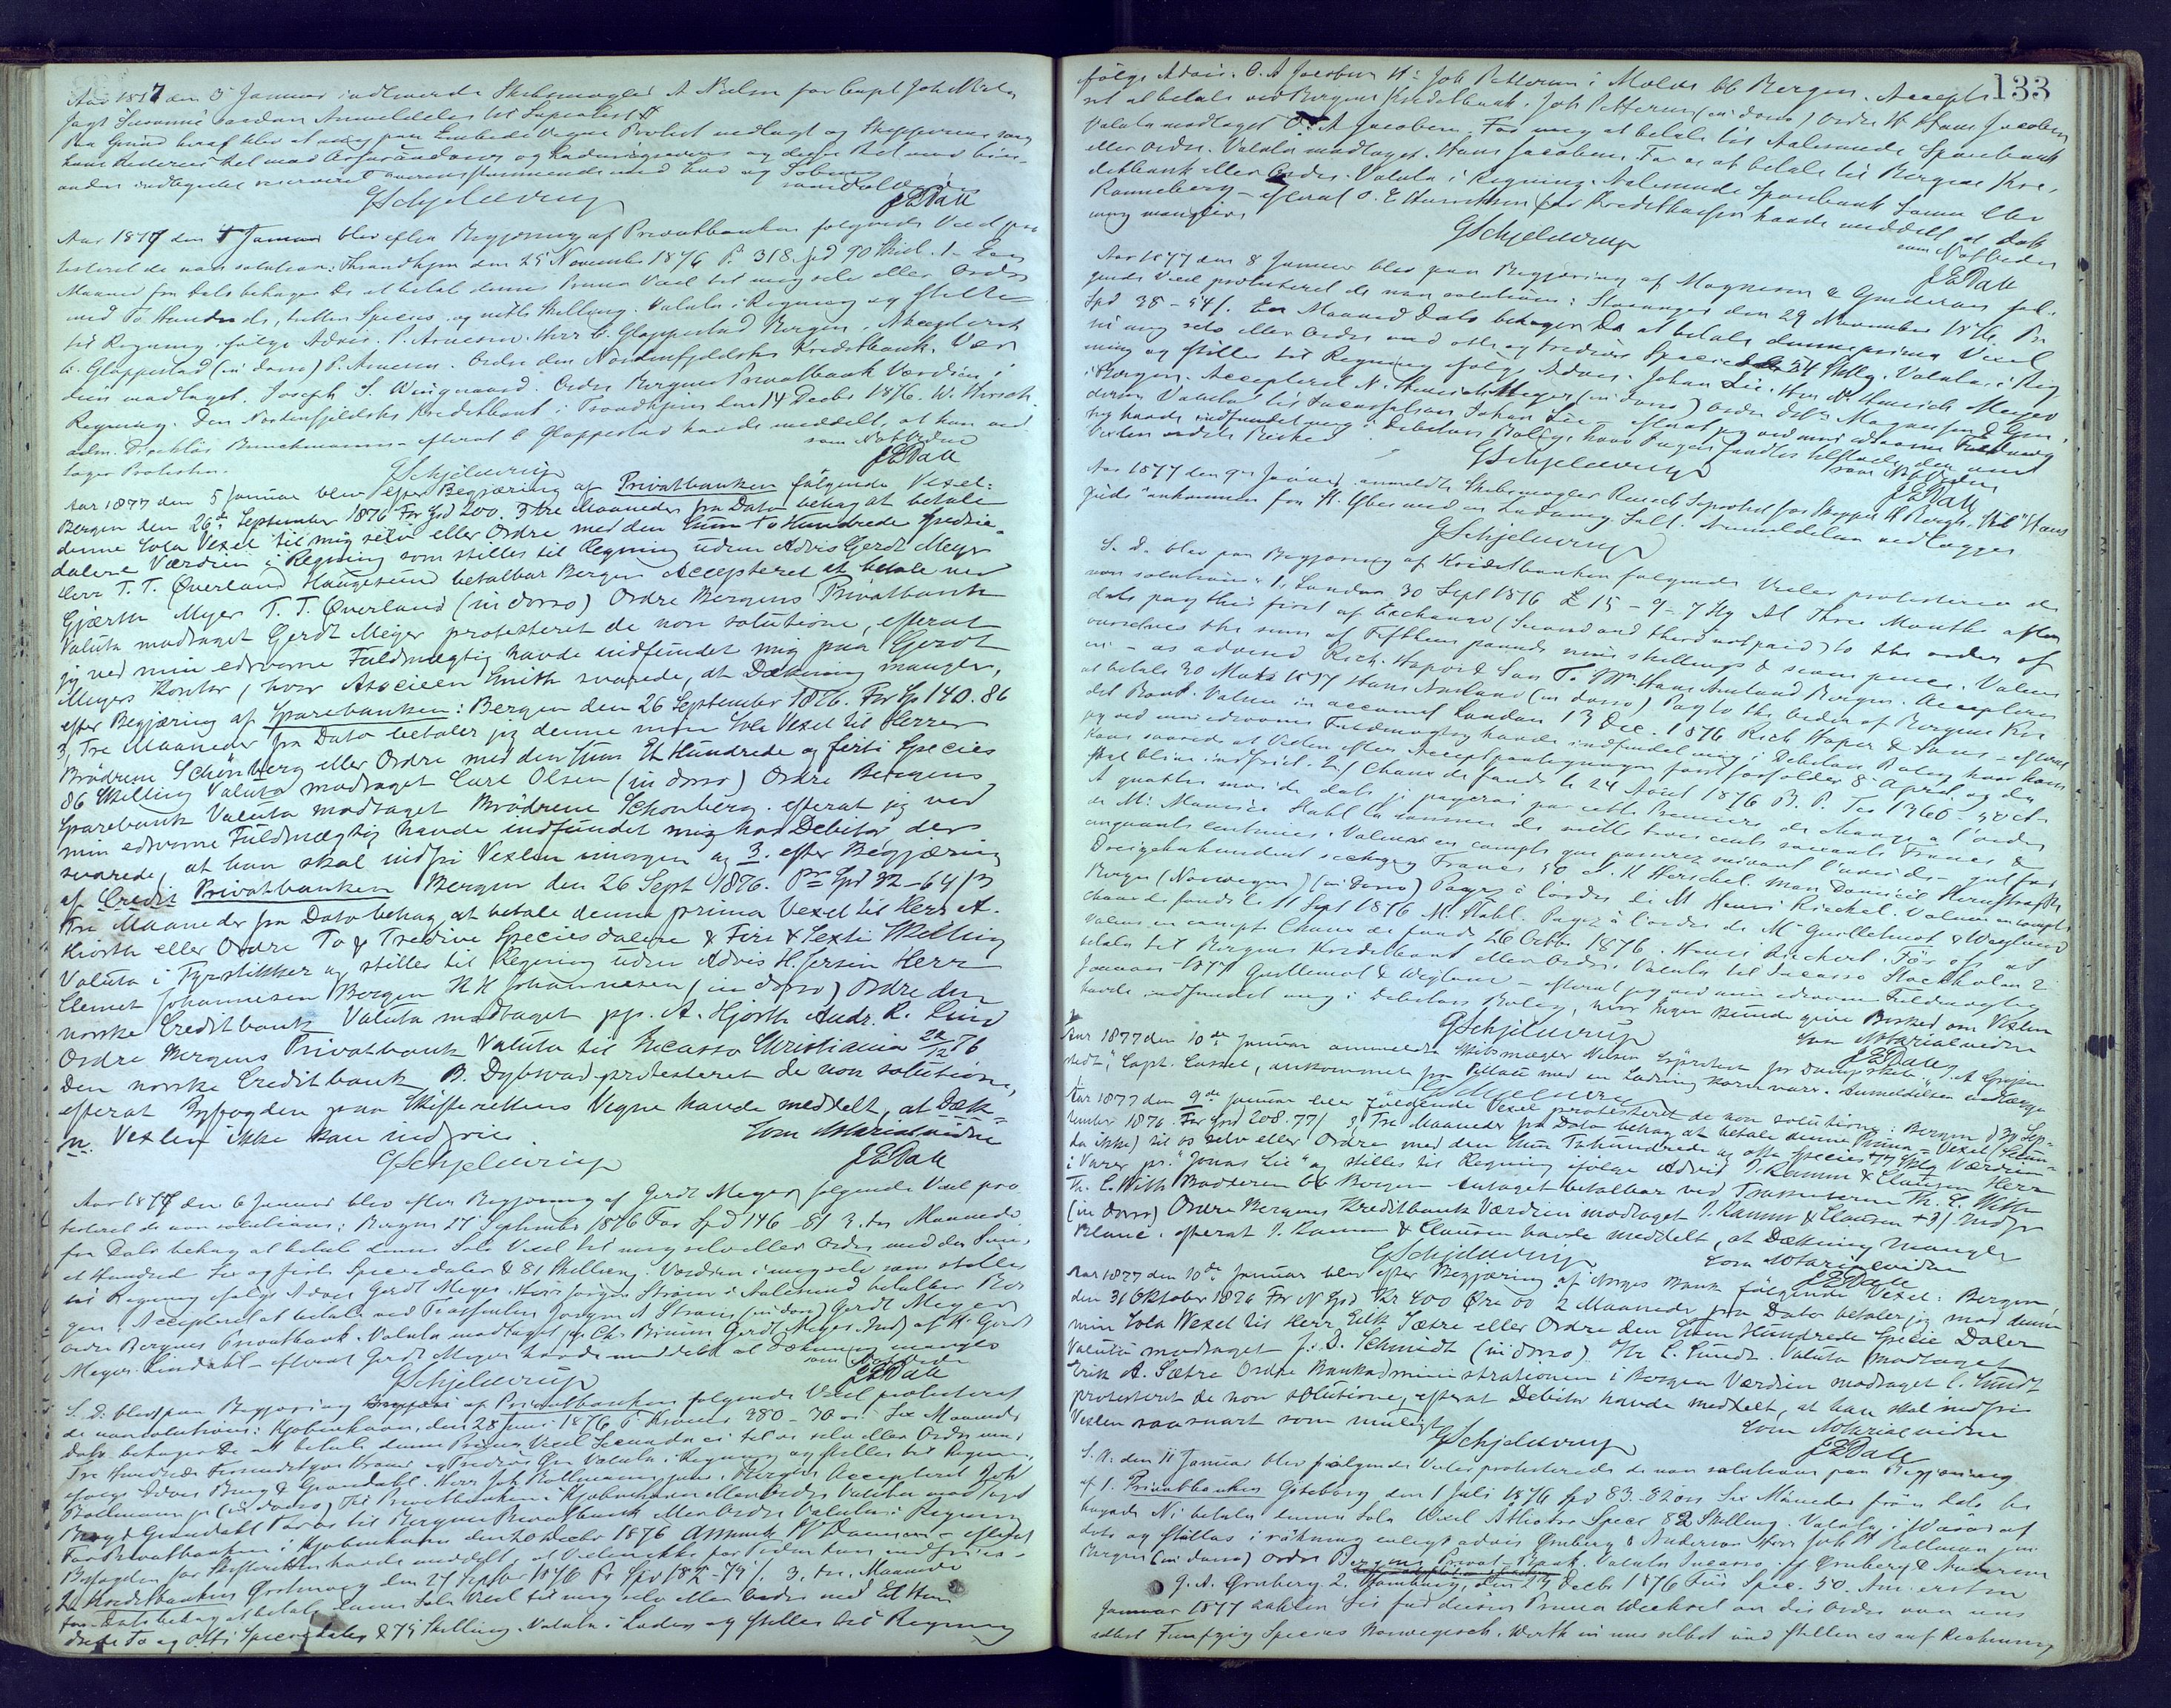 Aar 1877 den 3 Januar indleverede Skibsmægler A Nielsen for Capt Joh
Jagt saadan Anmeldelse til Søprotest
Paa Grund heraf blev at mig paa Embeds Vegne Protest nedlagt og Skipperens samt
hans Rederies Ret mod Assurandeurer og Ladningseiere og deres Ret mod hin-
anden indbyrdes reserveret overensstemmende med Lov og Sædvane
GSchjelderup JEDall
Aar 1877 den 4 Januar blev efter Begjæring af Privatbanken følgende Vexel pro
testeret de non solutione: Throndhjem den 25 November 1876 P. 318 Spd 90 Skil. 1. En
Maaned fra Dato behager De at betale denne Prima Vexel til mig selv eller Ordre
med To Hundrede, atten Species og nitti Skilling. Valuta i Regning og stilles
til Regning ifølge Advis. P. Arnesen. Herr C. Gloppestad Bergen. Accepteret
C. Gloppestad (in dorso) P. Arnesen. Ordre den Nordenfjeldske Kreditbank. Vær
dien modtaget. Joseph S. Wingaard. Ordre Bergens Privatbank Værdien i
Regning. Den Nordenfjeldske Kreditbank i Trondhjem den 14 Decbr 1876. W. Hirsch
adm. Direktør Bunchmann - efterat C Gloppestad havde meddelt, at han mod
tager Protesten. som Notarvidne
GSchjelderup JEDall
Aar 1877 den 5 Januar blev efter Begjæring af Privatbanken følgende Vexel:
Bergen den 26de September 1876 For Spd 200. 3 tre Maaneder fra Dato behag at betale
denne Sola Vexel til mig selv eller Ordre med den Sum To Hundrede Specie-
dalere Værdien i Regning som stilles til Regning uden Advis Gerdt Meyer
Herr T. T. Øverland Haugesund betalbar Bergen Accepteret at betale ved
Gjærth Meyer T. T. Øverland (in dorso) Ordre Bergens Privatbank
Valuta modtaget Gerdt Meyer protesteret de non solutione, efterat
jeg ved min edsvorne Fuldmægtig havde indfundet mig paa Gerdt
Meyers Kontor, hvor Associeen Smith svarede, at Dækning mangler,
efter Begjæring af Sparebanken: Bergen den 26 September 1876. For Sp 140. 86
3, Tre Maaneder fra Dato betaler jeg denne min Sola Vexel til Herrer
Brödrene Schönberg eller Ordre med den Sum Et Hundrede og førti Species
86 Skilling Valuta modtaget Carl Olsen (in dorso) Ordre Bergens
Sparebank Valuta modtaget Brödrene Schönberg. efterat jeg ved
min edsvorne Fuldmægtig havde indfundet mig hos Debitor der
svarede, at han skal indfri Vexlen imorgen og 3. efter Begjæring
af Credit Privatbanken Bergen den 26 Sept 1876. Pr Spd 32-64 ß
Tre Maaneder fra Dato behag at betale denne prima Vexel til Herr A.
Hiorth eller Ordre To & Tredive Speciesdalere & Fire & Sexti Skilling
Valuta i Fyrstikker og stilles til Regning uden Advis H. Jersin Herr
Clemet Johannesen Bergen K K Johannesen (in dorso) Ordre den
norske Creditbank Valuta modtaget pp. A. Hjorth Andr. R. Lund
Ordre Bergens Privatbank Valuta til Incasso Christiania 22/12 76
Den norske Creditbank B. Dybwad protesteret de non solutione,
efterat Byfogden paa Skifterettens Vegne havde meddelt, at
Vexlen ikke kan indfries. Som Notarialvidne
GSchjelderup JEDall
Aar 1877 den 6 Januar blev efter Begjæring af Gerdt Meyer følgende Vexel pro
testeret de non solutione: Bergen 27 September 1876 For Spd 146 - 81 3. tre Maaneder
fra Dato behag at betale denne Sola Vexel til mig selv eller Ordre med den Sum
et Hundrede Sex og førti Speciedaler & 81 Skilling. Værdien i mig selv som stilles
til Regning ifølge Advis Gerdt Meyer. Herr Jørgen Strøm i Aalesund betalbar Ber
gen. Accepteret at betale ved Trassenten Jørgen A Strøm (in dorso) Gerdt Meyer
Ordre Bergens Privatbank. Valuta modtaget pp. Chr Bruun Gerdt Meyer. Indf af H. Gerdt
Meyer. Lindahl - efterat Gerdt Meyer havde meddelt at Dækning mangler
GSchjelderup JEDall
S. D. blev paa Begjæring af Privatbanken følgende Vexel protesteret
de non solutione: Kjøbenhavn, den 28 Juni 1876 P. Kroner 380-30 øre Sex Maaneder
dato behager De at betale denne Prima Vexel Secunda ei til os selv eller Ordre med
Tre Hundrede Kroner og Tredive Øre Valuta i Regning og stilles til Regning
ifølge Advis Bing & Grøndahl. Herr Joh Rollmann junr. Bergen Accepteret Joh
Rollmann jr (in dorso) Til Privatbanken i Kjøbenhavn eller Ordre Valuta modtaget
Bing & Grøndahl For os til Bergens Privatbank eller Ordre Valuta i Regning
For Privatbanken i Kjøbenhavn den 20 Decbr 1876 - efterat
Byfogden for Skifteretten havde meddelt, at Vexlen ikke for Tiden kan indfries -
2. Kreditbanken den 27 Septbr 1876 Pr Spd 182-79/. 3. tre Maaneder
fra Dato behag at betale denne Sola Vexel til mig selv eller Ordre med Et Hun
drede To og otti Speciedaler & 79 Skilling. Valuta i Laden og stilles til Regning
133
følge Advis. O. A Jacobsen Hr Joh Pettersen i Molde bb Bergen. Accepte
ret at betale ved Bergens Kreditbank. Joh Pettersen (in dorso) Ordre Hr Hans Jacobsen
Valuta modtaget O. A Jacobsen. For mig at betale til Aalesunds Sparebank
eller Ordre. Valuta modtaget. Hans Jacobsen. For os at betale til Bergens Kre-
ditbank eller Ordre. Valuta i Regning. Aalesunds Sparebank
Ronneberg - efterat O. E for Kreditkassen havde meddelt, at Dæk
ning mangler. som Notarvidne
GSchjelderup JEDall
Aar 1877 den 8 Januar blev paa Begjæring af Magnesen & Gundersen føl-
gende Vexel protesteret de non solutione: Stavanger den 29 November 1876. Pr
Spd 38-54/. En Maaned Dato behager De at betale denne prima Vexel
til mig selv eller Ordre med otte og tredive Species 54 Skillg. Valuta i Reg
ning og stilles til Regning ifølge Advis. Johan Lie. Hrr N. Henrich Meyer
i Bergen. Accepteret N. Henrich Meyer (in dorso) Ordre dHrr Magnesen & Gun-
dersen Valuta til Incasso Johan Lie - efterat jeg ved min edsvorne Fuldmægtig
havde indfundet mig i Debitors Bolig, hvor Ingen fandtes tilstede der om
Vexlen vidste Besked
GSchjelderup JEDall
Aar 1877 den 9de Januar anmeldte Skibsmægler Reusch Søprotest for Skipper H Bergh. Skib "Hans
Gude" ankommen fra St. Ybes med en Ladning Salt. Anmeldelsen vedlægges
GSchjelderup
S. D. blev paa Begjæring af Kreditbanken følgende Vexler protesteret de
non solutione: 1. London 30 Sept 1876 £ 15-9-7 Stg At Three Months after
date pay this first of Exchange (Second and third not paid) to the order of
ourselves the sum of Fifteen pounds nine shillings & seven pence. Value
in - as advised Rich. Hooper & Son To Mr Hans Amland Bergen. Accepteret
at betale 30 Marts 1877 Hans Amland (in dorso) Pay to the Order of Bergens Kre
dit Bank. Value in account London 13 Dec. 1876 Rich Hooper & Sons - efterat
jeg ved min edsvorne Fuldmægtig havde indfundet mig i Debitors Bolig hvor han
svarede at Vexlen efter Acceptpaategningen først forfalder 8 April og da
skal blive indfriet. 2/ Chaux de fonds le 24 Aout 1876 B. P. Fcs 1360-50 cts
A quatre mois de date je payerai par cette Premiere de change a l'ordre
de M: Maurice Stahl la somme de mille trois cents soixante Francs &
cinquante centimes. Valeur en compte que passerez suivant l'avis de - gut for
Dreizehnhundert sechzig Francs 50 ct. H Herschel. Mon Domicil
Bergen (Norwegen) (in dorso) Payez à l'ordre de M Henri Rieckel. Valeur en compte
Chaux de fonds le 11 Sept 1876 M. Stahl. Payez à l'ordre de Mr Guillemot & Weylund
Valeur en compte Chaux de fonds 26 Octbr 1876. Henri Rieckel. För oss at
betala till Bergens Kreditbank eller Ordre. Valuta til Incasso Stockholm 2
Januari 1877 Guillemot & Weylund - efterat jeg ved min edsvorne Fuldmægtig
havde indfundet mig i Debitors Bolig, hvor Ingen kunde give Besked om Vexlen
GSchjelderup Som Notarialvidne
JEDall
Aar 1877 den 10de Januar anmeldte Skibsmægler Nielsen Søprotest for Dampskib
Capt. Cassel, ankommet fra Pillau med en Ladning Kornvarer. Anmeldelsen vedlægges
GSchjelderup
Aar 1877 den 9de Januar blev følgende Vexel protesteret de non solutione: Bergen d 30 Sep-
tember 1876. For Spd 208. 77/ 3, Tre Maaneder fra Dato behag at betale denne Prima-Vexel (Secun-
da ikke) til os selv eller Ordre med den Sum Tohundrede og otte Species 77 Skg Værdien
i Varer pr. "Jonas Lie" og stilles til Regning ifølge Advis J. Ramm & Clausen Herr
Th. C. With Badderen bb Bergen Antaget betalbar ved Trassenterne Th. C. With
(in dorso) Ordre Bergens Kreditbank Værdien modtaget J. Ramm & Clausen
Blanc. efterat J. Ramm & Clausen havde meddelt, at Dækning mangler
GSchjelderup Som Notarialvidne
JEDall
Aar 1877 den 10de Januar blev efter Begjæring af Norges Bank følgende Vexel: Bergen,
den 31 Oktober 1876 For N Spd Kr 400 Øre 00 2 Maaneder fra Dato betaler jeg mod denne
min Sola Vexel til Herr Erik Sætre eller Ordre den Sum Hundrede Specie Daler
Valuta modtaget J. D. Schmidt (in dorso) Hr C. Sundt. Valuta modtaget
Erik A. Sætre Ordre Bankadministrationen i Bergen Værdien modtaget C. Sundt
protesteret de non solutione, efterat Debitor havde meddelt, at han skal indfri
Vexlen saasnart som muligt Som Notarialvidne
GSchjelderup JEDall
S. A. den 11 Januar blev følgende Vexler protesterede de non solutione paa Begjæring
af 1. Privatbanken Göteborg den 1 Juli 1876 Spd 83.-82 öre Sex Månader från dato be
hagade Ni betala denna Sola Vexel Åttiotre Specie 82 Skilling. Valuta i Varor af
dato og ställas i räkning enligt advis Grönberg & Anderson Herr Joh H Rollman jun
Bergen (in dorso) Ordre Bergens Privat-Bank. Valuta Incasso. pp. Grönberg & Anderson
G. A. Grönberg. 2. Hamburg, den 27 Decbr 1876 Für Spec. 50. Am ersten
Januar 1877 zahlen Sie für diesen Prima Wechsel an die Ordre von uns
selbst Funfzig Species Norwegisch. Werth in uns selbst und stellen es auf Rechnung